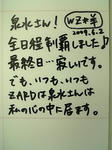 泉水さん! WZ*羊
2009.6.2
全日程制覇しました♪
最終日…寂いです。
でも、いつも、いつも
ZARDは泉水さんは
私の心の中に居ます。